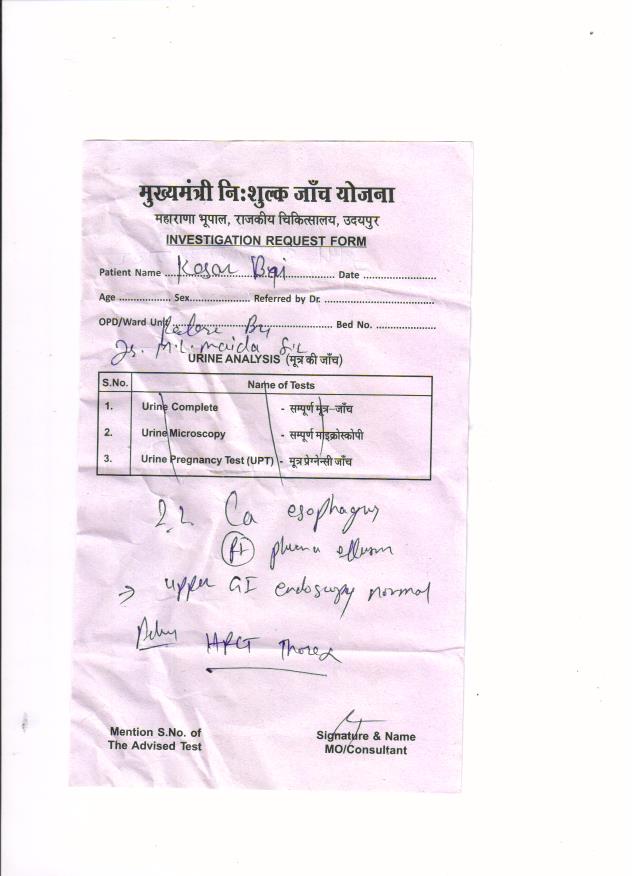 मुख्यमंत्री निःशुल्क जाँच योजना
महाराणा भूपाल, राजकीय चिकित्सालय, उदयपुर
INVESTIGATION REQUEST FORM
Patient Name Kosar Bai Date
Age Sex Referred by Dr.
OPD/Ward Unit Bed No.
M.L.
URINE ANALYSIS (मूत्र की जाँच)
S.No. Name of Tests
1. Urine Complete - सम्पूर्ण मूत्र-जाँच
2. Urine Microscopy - सम्पूर्ण माइक्रोस्कोपी
3. Urine Pregnancy Test (UPT) - मूत्र प्रेग्नेन्सी जाँच
Ca esophagus
upper GI endoscopy normal
HRCT Thorax
Mention S.No. of
The Advised Test
Signature & Name
MO/Consultant